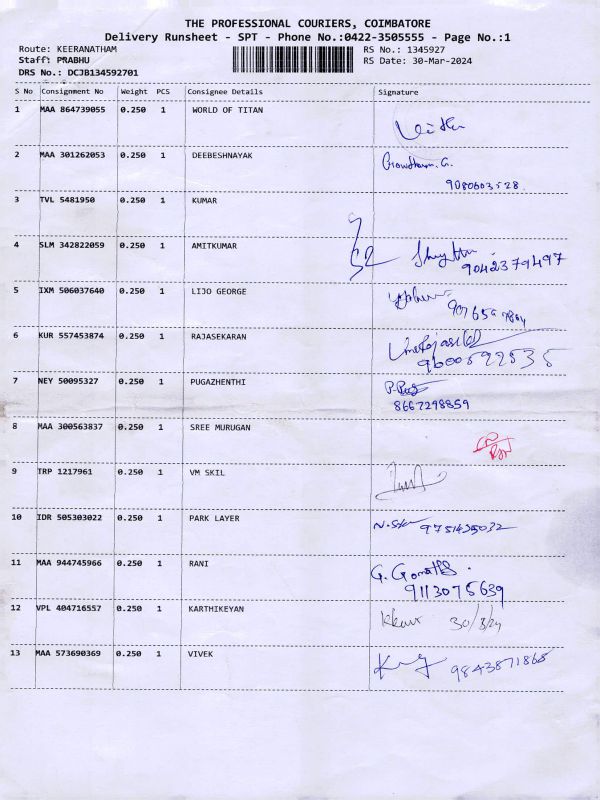 THE PROFESSIONAL COURIERS, COIMBATORE
Delivery Runsheet - SPT - Phone No.:0422-3505555 - Page No.:1
Route: KEERANATHAM RS No.: 1345927
Staff: PRABHU RS Date: 30-Mar-2024
DRS No.: DCJB134592701
S No Consignment No Weight PCS Consignee Details Signature
1 MAA 864739055 0.250 1 WORLD OF TITAN
2 MAA 301262053 0.250 1 DEEBESHNAYAK
9080603528
3 TVL 5481950 0.250 1 KUMAR
4 SLM 342822059 0.250 1 AMITKUMAR
9042379497
5 IXM 506037640 0.250 1 LIJO GEORGE
6 KUR 557453874 0.250 1 RAJASEKARAN
9600522535
7 NEY 50095327 0.250 1 PUGAZHENTHI
8667298859
8 MAA 300563837 0.250 1 SREE MURUGAN
9 TRP 1217961 0.250 1 VM SKIL
10 IDR 505303022 0.250 1 PARK LAYER
9751435032
11 MAA 944745966 0.250 1 RANI
9113075639
12 VPL 404716557 0.250 1 KARTHIKEYAN 30/3/24
13 MAA 573690369 0.250 1 VIVEK 9843871868